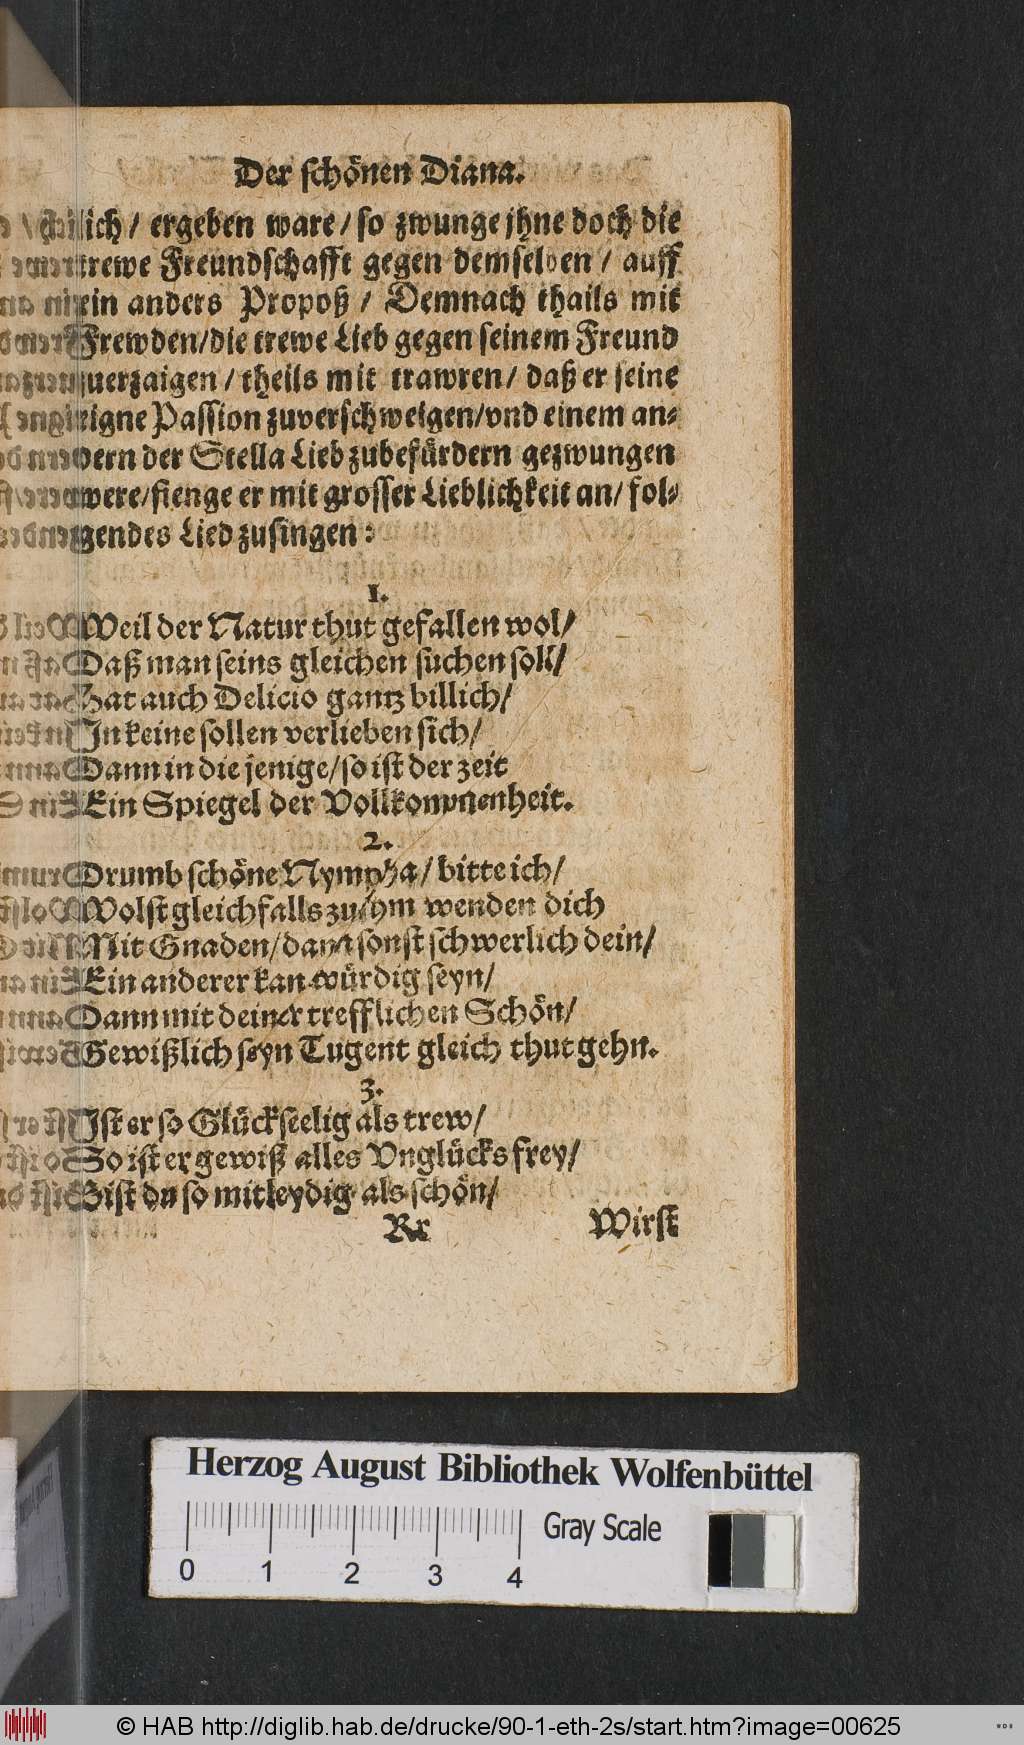 Der schönen Diana.
lich / ergeben ware / so zwunge jhne doch die
trewe Freundschafft gegen demselben / auff
ein anders Propoß / Demnach thails mit
Frewden/die trewe Lieb gegen seinem Freund
zuerzaigen / theils mit trawren / daß er seine
eigne Passion zuverschweigen/vnd einem an⸗
dern der Stella Lieb zubefürdern gezwungen
were/fienge er mit grosser Lieblichkeit an/ fol⸗
gendes Lied zusingen:
1.
Weil der Natur thut gefallen wol/
Daß man seins gleichen suchen soll/
Hat auch Delicio gantz billich/
In keine sollen verlieben sich/
Dann in die jenige/so ist der zeit
Ein Spiegel der Vollkommenheit.
2.
Drumb schöne Nympha / bitte ich/
Wolst gleichfalls zu jhm wenden dich
Mit Gnaden/dann sonst schwerlich dein/
Ein anderer kan würdig seyn/
Dann mit deiner trefflichen Schön/
Gewißlich seyn Tugent gleich thut gehn.
3.
Ist er so Glückseelig als trew/
So ist er gewiß alles Vnglücks frey/
Bist du so mitleydig als schön/
Rr
Wirst
Herzog August Bibliothek Wolfenbüttel
0 1 2 3 4
Gray Scale
© HAB http://diglib.hab.de/drucke/90-1-eth-2s/start.htm?image=00625